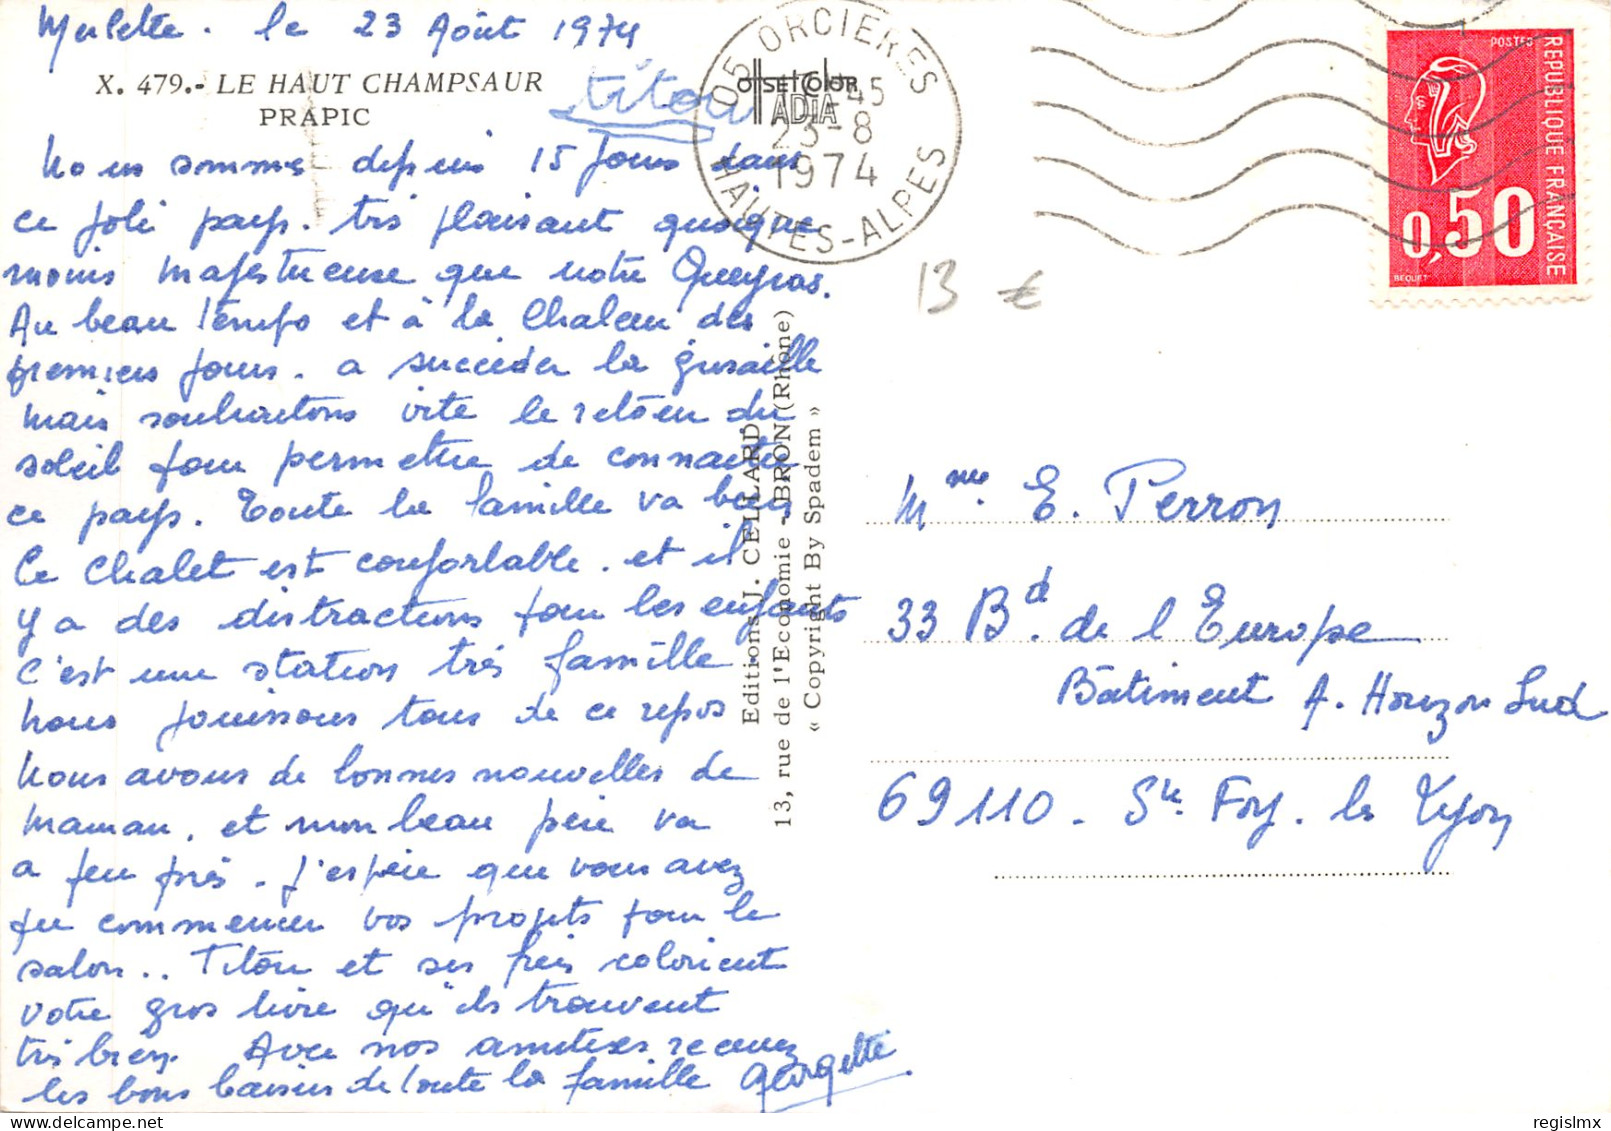 Merlette. le 23 Août 1974
X. 479.- LE HAUT CHAMPSAUR
PRAPIC
titou
Nous sommes depuis 15 jours dans
ce joli pays. très plaisant quoique
moins majestueuse que notre Queyras.
Au beau temps et à la chaleur des
premiers jours. a succéder la grisaille
mais souhaitons vite le retour du
soleil pour permettre de connaitre
ce pays. Toute la famille va bien
Le chalet est confortable. et il
y a des distractions pour les enfants
c'est une station très famille.
Nous jouissons tous de ce repos
Nous avons de bonnes nouvelles de
Maman, et mon beau père va
a peu près. J'espère que vous avez
pu commencer vos projets pour le
salon.. Titou et ses frères colorient
votre gros livre qu'ils trouvent
très bien. Avec nos amitiés recevez
les bons baisers de toute la famille Georgette
Editions J. CELLARD
13, rue de l'Economie - BRON (Rhône)
« Copyright By Spadem »
OFFSETCOLOR
ADIA
05 ORCIERES
45
23-8
1974
HAUTES-ALPES
13 €
POSTES
REPUBLIQUE FRANÇAISE
0,50
BEQUET
Mme. E. Perron
33 Bd. de l'Europe
Bâtiment A. Horizon Sud
69110 - Ste Foy. les Lyon
regislmx